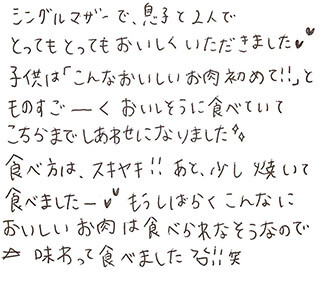 シングルマザーで、息子と2人で
とってもとってもおいしくいただきました♥♥
子供は「こんなおいしいお肉初めて!!」と
ものすごーく おいしそうに食べていて
こちらまでしあわせになりました
食べ方は、スキヤキ!! あと、少し焼いて
食べましたー♥♥ もうしばらくこんなに
おいしい お肉は食べられなそうなので
☆ 味わって食べました!!笑